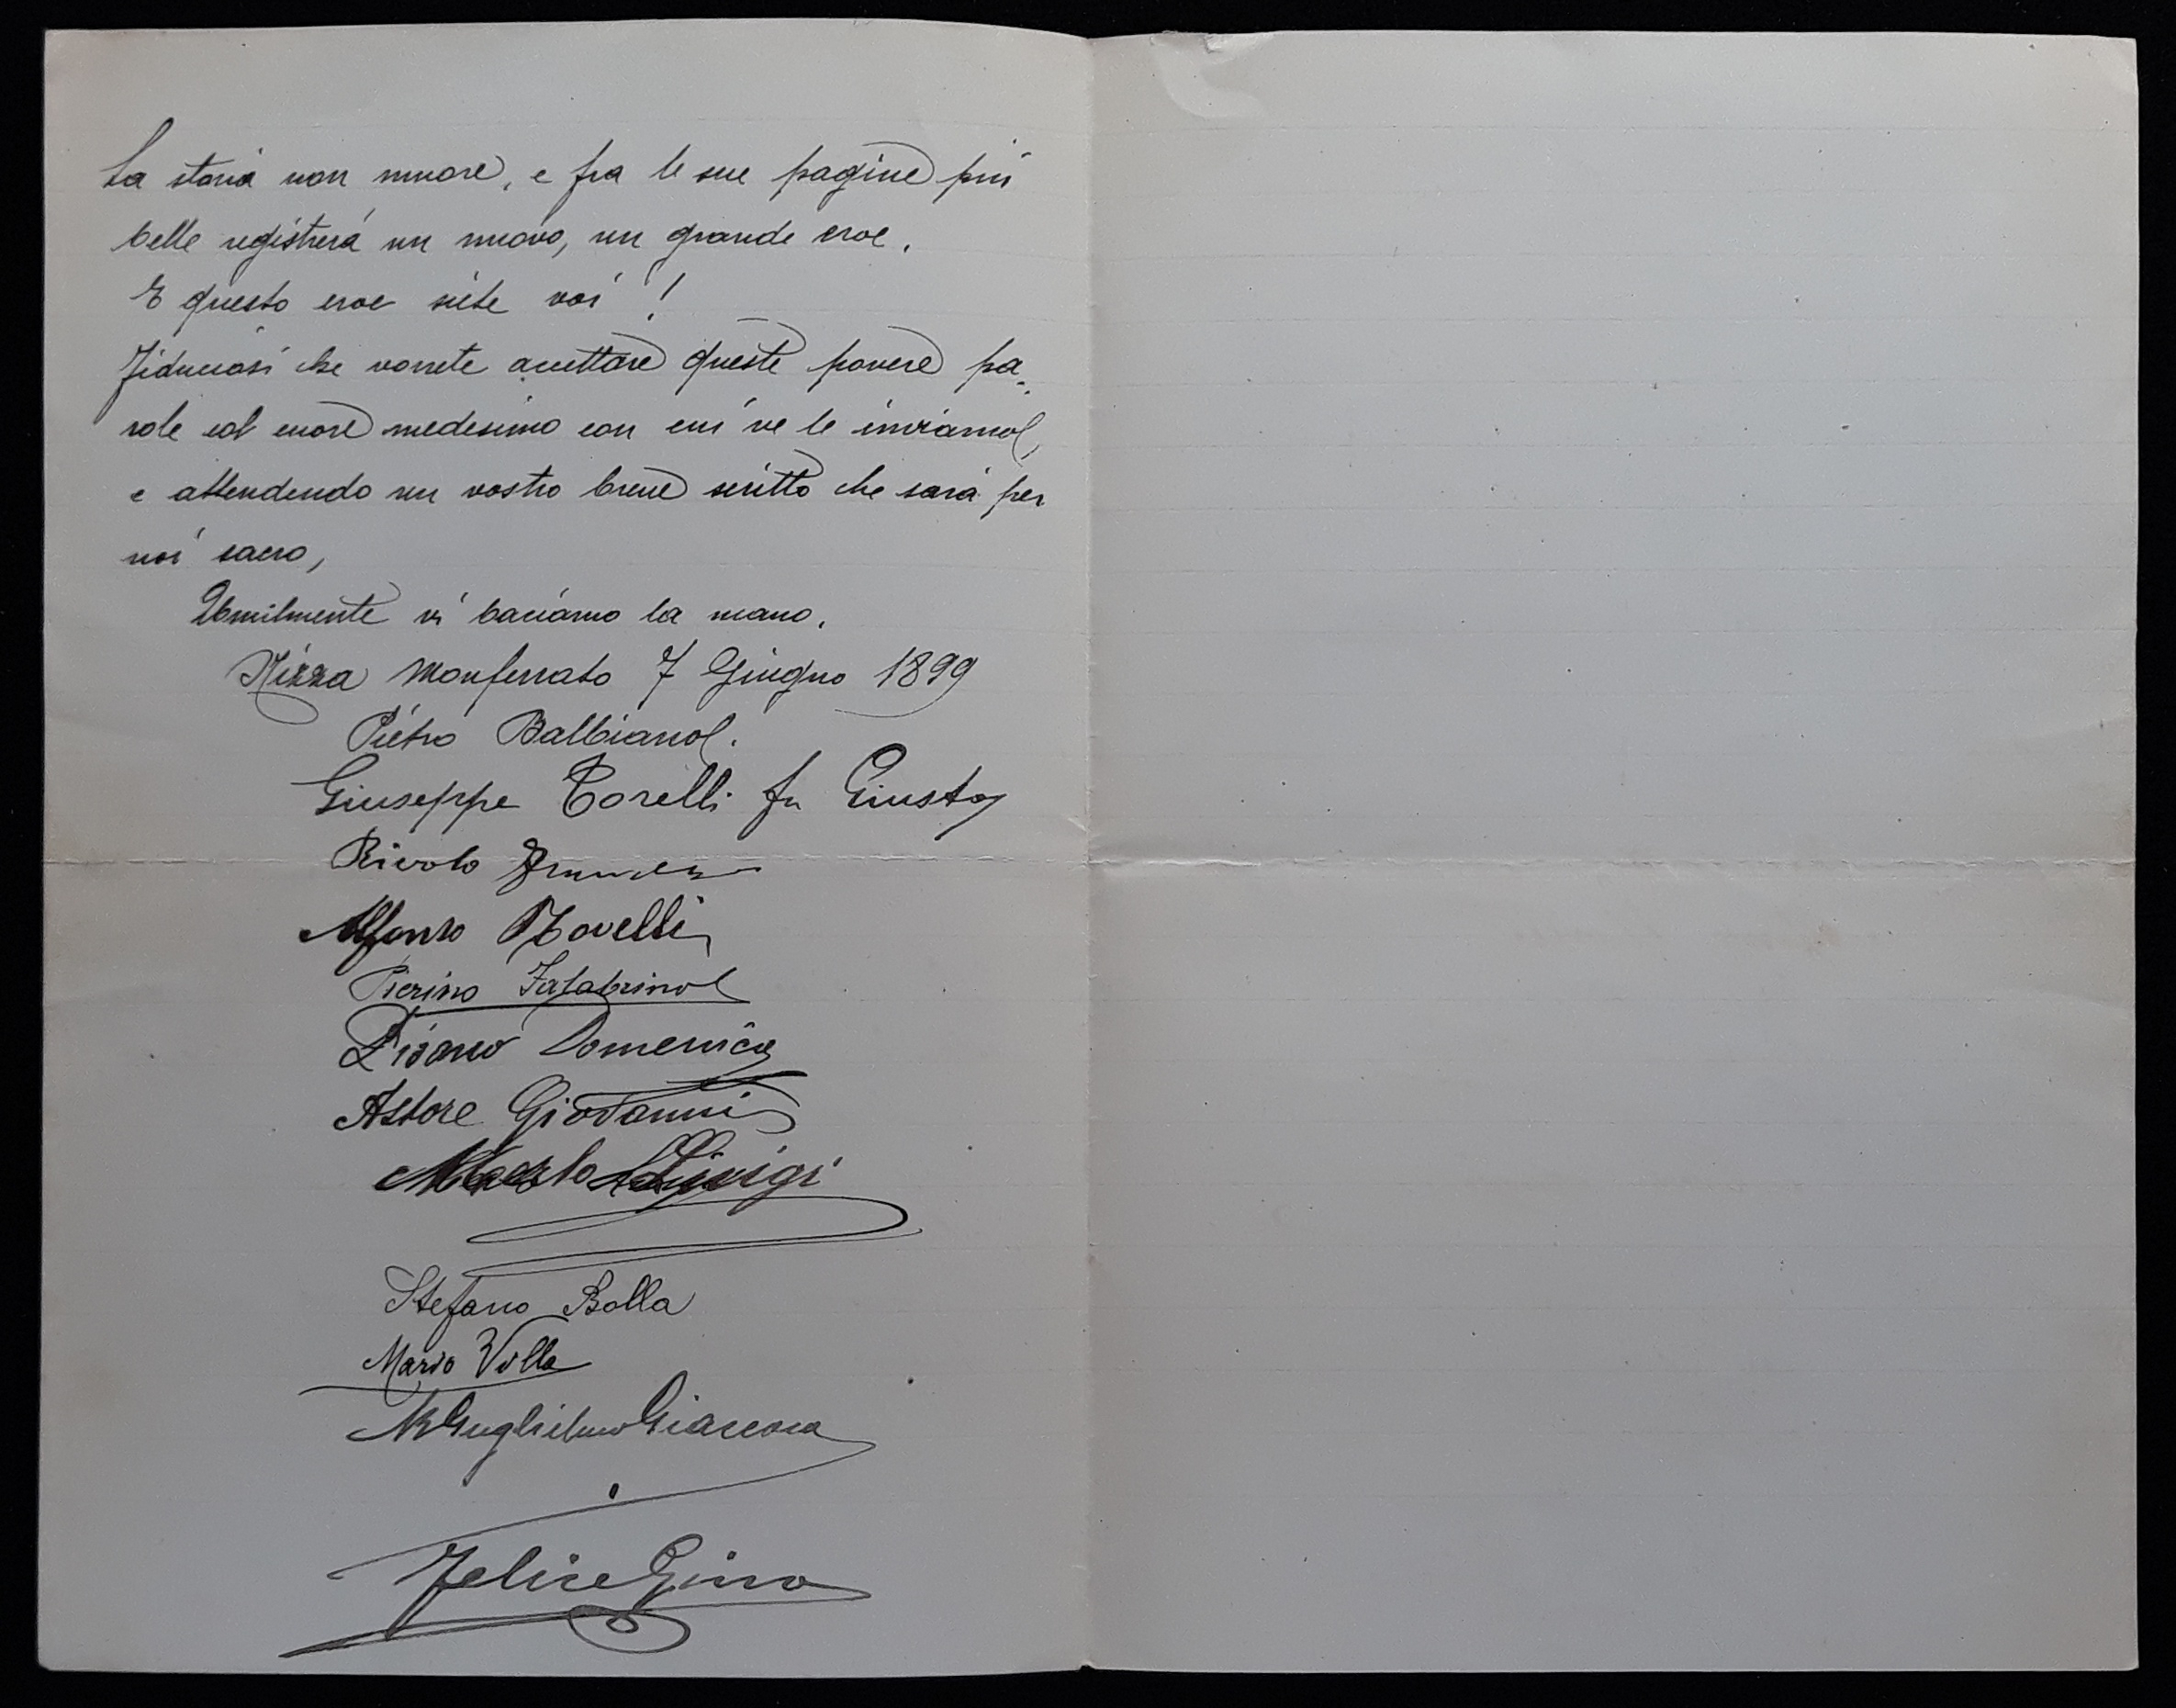 La storia non muore, e fra le sue pagine più
belle registrerà un nuovo, un grande eroe.
E questo eroe siete voi!
Fiduciosi che vorrete accettare queste povere pa=
role col cuore medesimo con cui ve le inviamo,
e attendendo un vostro breve scritto che sarà per
noi sacro,
Umilmente vi baciamo la mano.
Nizza Monferrato 7 Giugno 1899
Pietro Balbiano.
Giuseppe Torelli fu Giusto
Alfonso Novelli
Pierino
Pisano Domenico
Astore Giovanni
Luigi
Stefano Bolla
Mario Villa
Guglielmo
Felice Gino